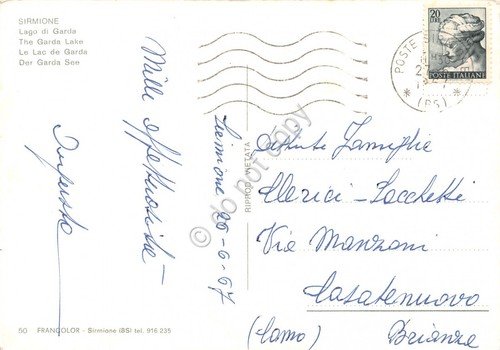 SIRMIONE
Lago di Garda
The Garda Lake
Le Lac de Garda
Der Garda See
20
LIRE
POSTE ITALIANE
POSTE
(BS)
Mille affettuosità
Sirmione 20-6-67
RIPROD. VIETATA
do not copy
Famiglie
Clerici-Sacchetti
Via Manzoni
Casatenuovo
(Como) Brianza
50 FRANCOLOR - Sirmione (BS) tel. 916 235